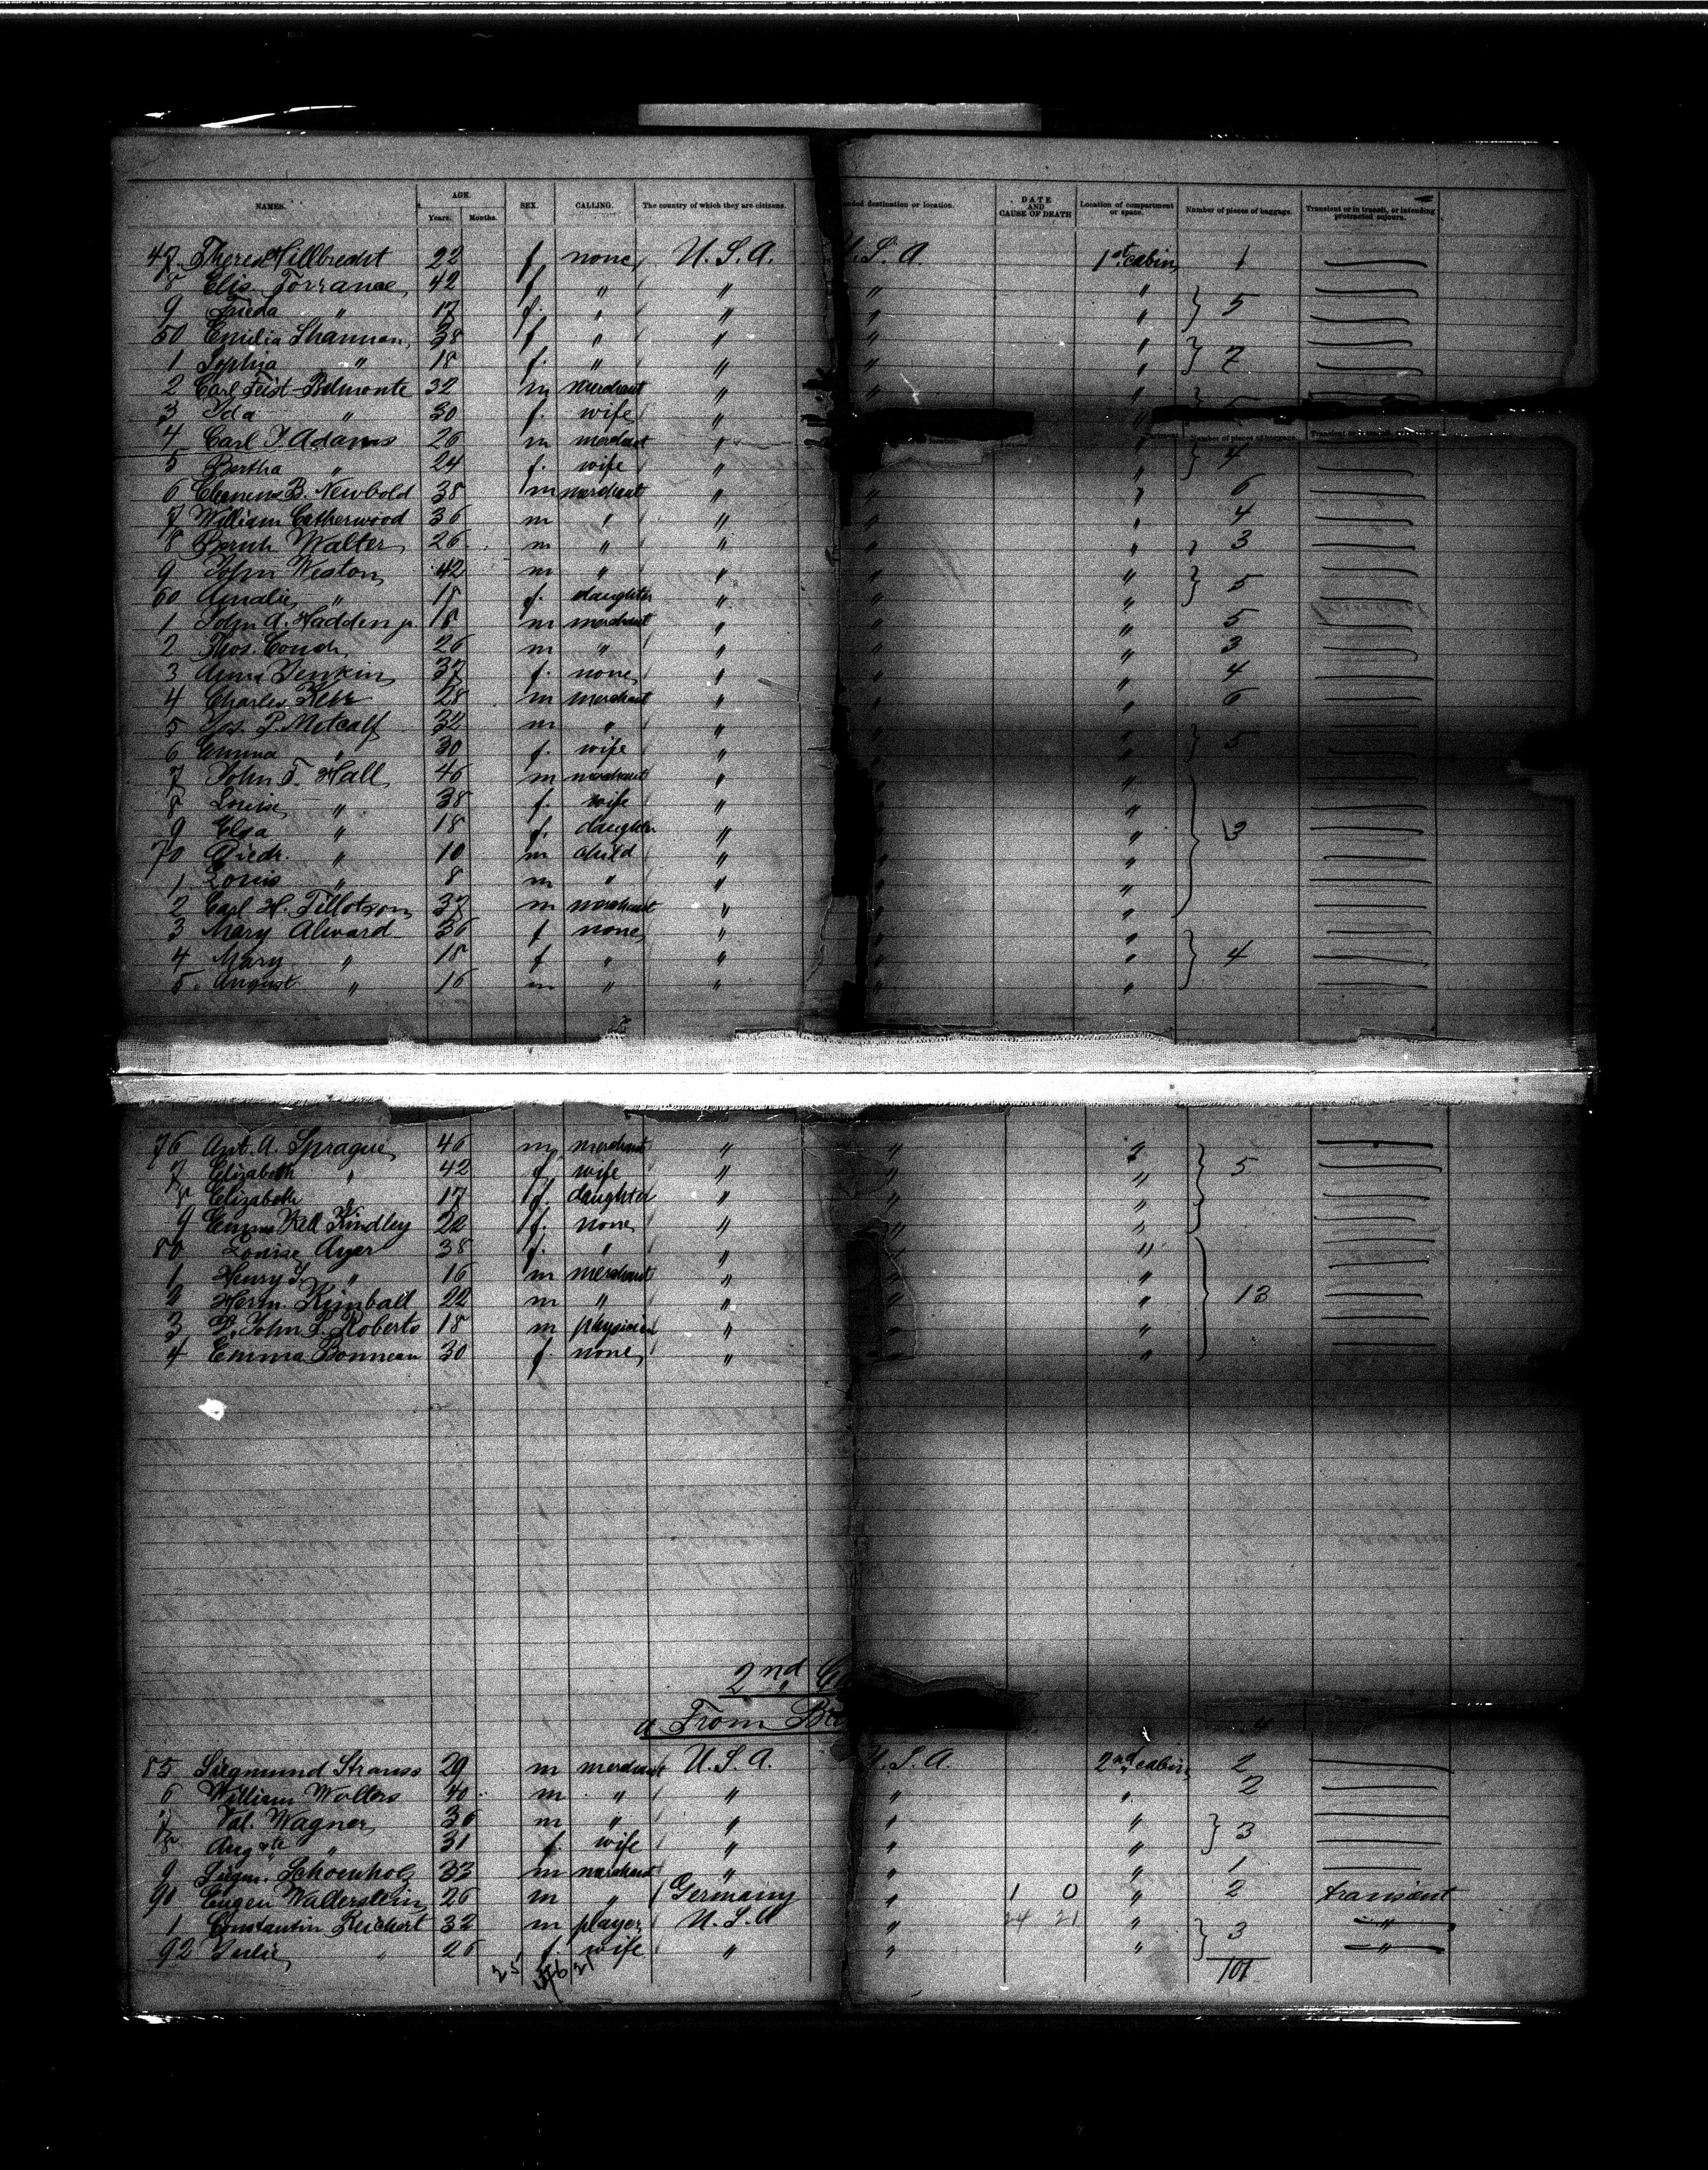 NAMES. AGE. Years. Months. SEX. CALLING. The country of which they are citizens. nded destination or location. DATE AND CAUSE OF DEATH Location of compartment or space. Number of pieces of baggage. Transient or in transit, or intending protracted sojourn.
47 Hillbrecht 22 f none U.S.A. U.S.A. 1st cabin 1
8 Elis. Torrance 42 f " " " "
9 Frieda " 17 f. " " " " 5
50 Emilia Shannan 38 f " " " "
1 Sophia " 18 f. " " " " 7
2 Carl Feist-Belmonte 32 m merchant " " "
3 Ida " 30 f. wife " "
4 Carl J. Adams 26 m merchant "
5 Bertha " 24 f. wife " " " 4
6 Clemens B. Newbold 38 m merchant " " " 6
7 William Catherwood 36 m " " " " 4
8 Walter 26 m " " " " 3
9 John Weston 42 m " " " "
60 Amalie " 18 f. daughter " " " 5
1 John A. Hadden jr. 18 m merchant " " " 5
2 Thos. 26 m " " " " 3
3 Anna Jenkin 37 f. none " " " 4
4 Charles 28 m merchant " " " 6
5 Jos. P. Metcalf 32 m " " " "
6 Emma " 30 f. wife " " " 5
7 John T. Hall 46 m merchant " " "
8 Louise " 38 f. wife " " "
9 Elsa " 18 f. daughter " " " 3
70 " 10 m child " " "
1 Louis " 8 m " " " "
2 Carl H. Tillotson 37 m merchant " " "
3 Mary Alward 36 f none " " "
4 Mary " 18 f " " " " 4
5 August " 16 m " " " "
76 A. Sprague 46 m merchant " " "
7 Elizabeth " 42 f. wife " " " 5
8 Elizabeth " 17 f. daughter " " "
9 Emma Kindley 22 f. none " " "
80 Louise Ayer 38 f. " " " "
1 Henry " 16 m merchant " " "
2 Herm. Kimball 22 m " " " " 13
3 John Roberts 18 m physician " " "
4 Emma Bonneau 30 f. none " "
2nd
a From
85 Siegmund Strauss 29 m merchant U.S.A. U.S.A. 2nd cabin 2
6 William Wolters 40 m " " " " 2
7 Val. Wagner 36 m " " " "
8 Auguste " 31 f. wife " " " 3
9 Siegm. Schoenholz 33 m merchant " " " 1
90 Eugen Wallerstein 26 m " Germany " 1 0 " 2 transient
1 Constantin Reichert 32 m player U.S.A " 24 21 " 3 "
92 " 26 f. wife " " " "
101